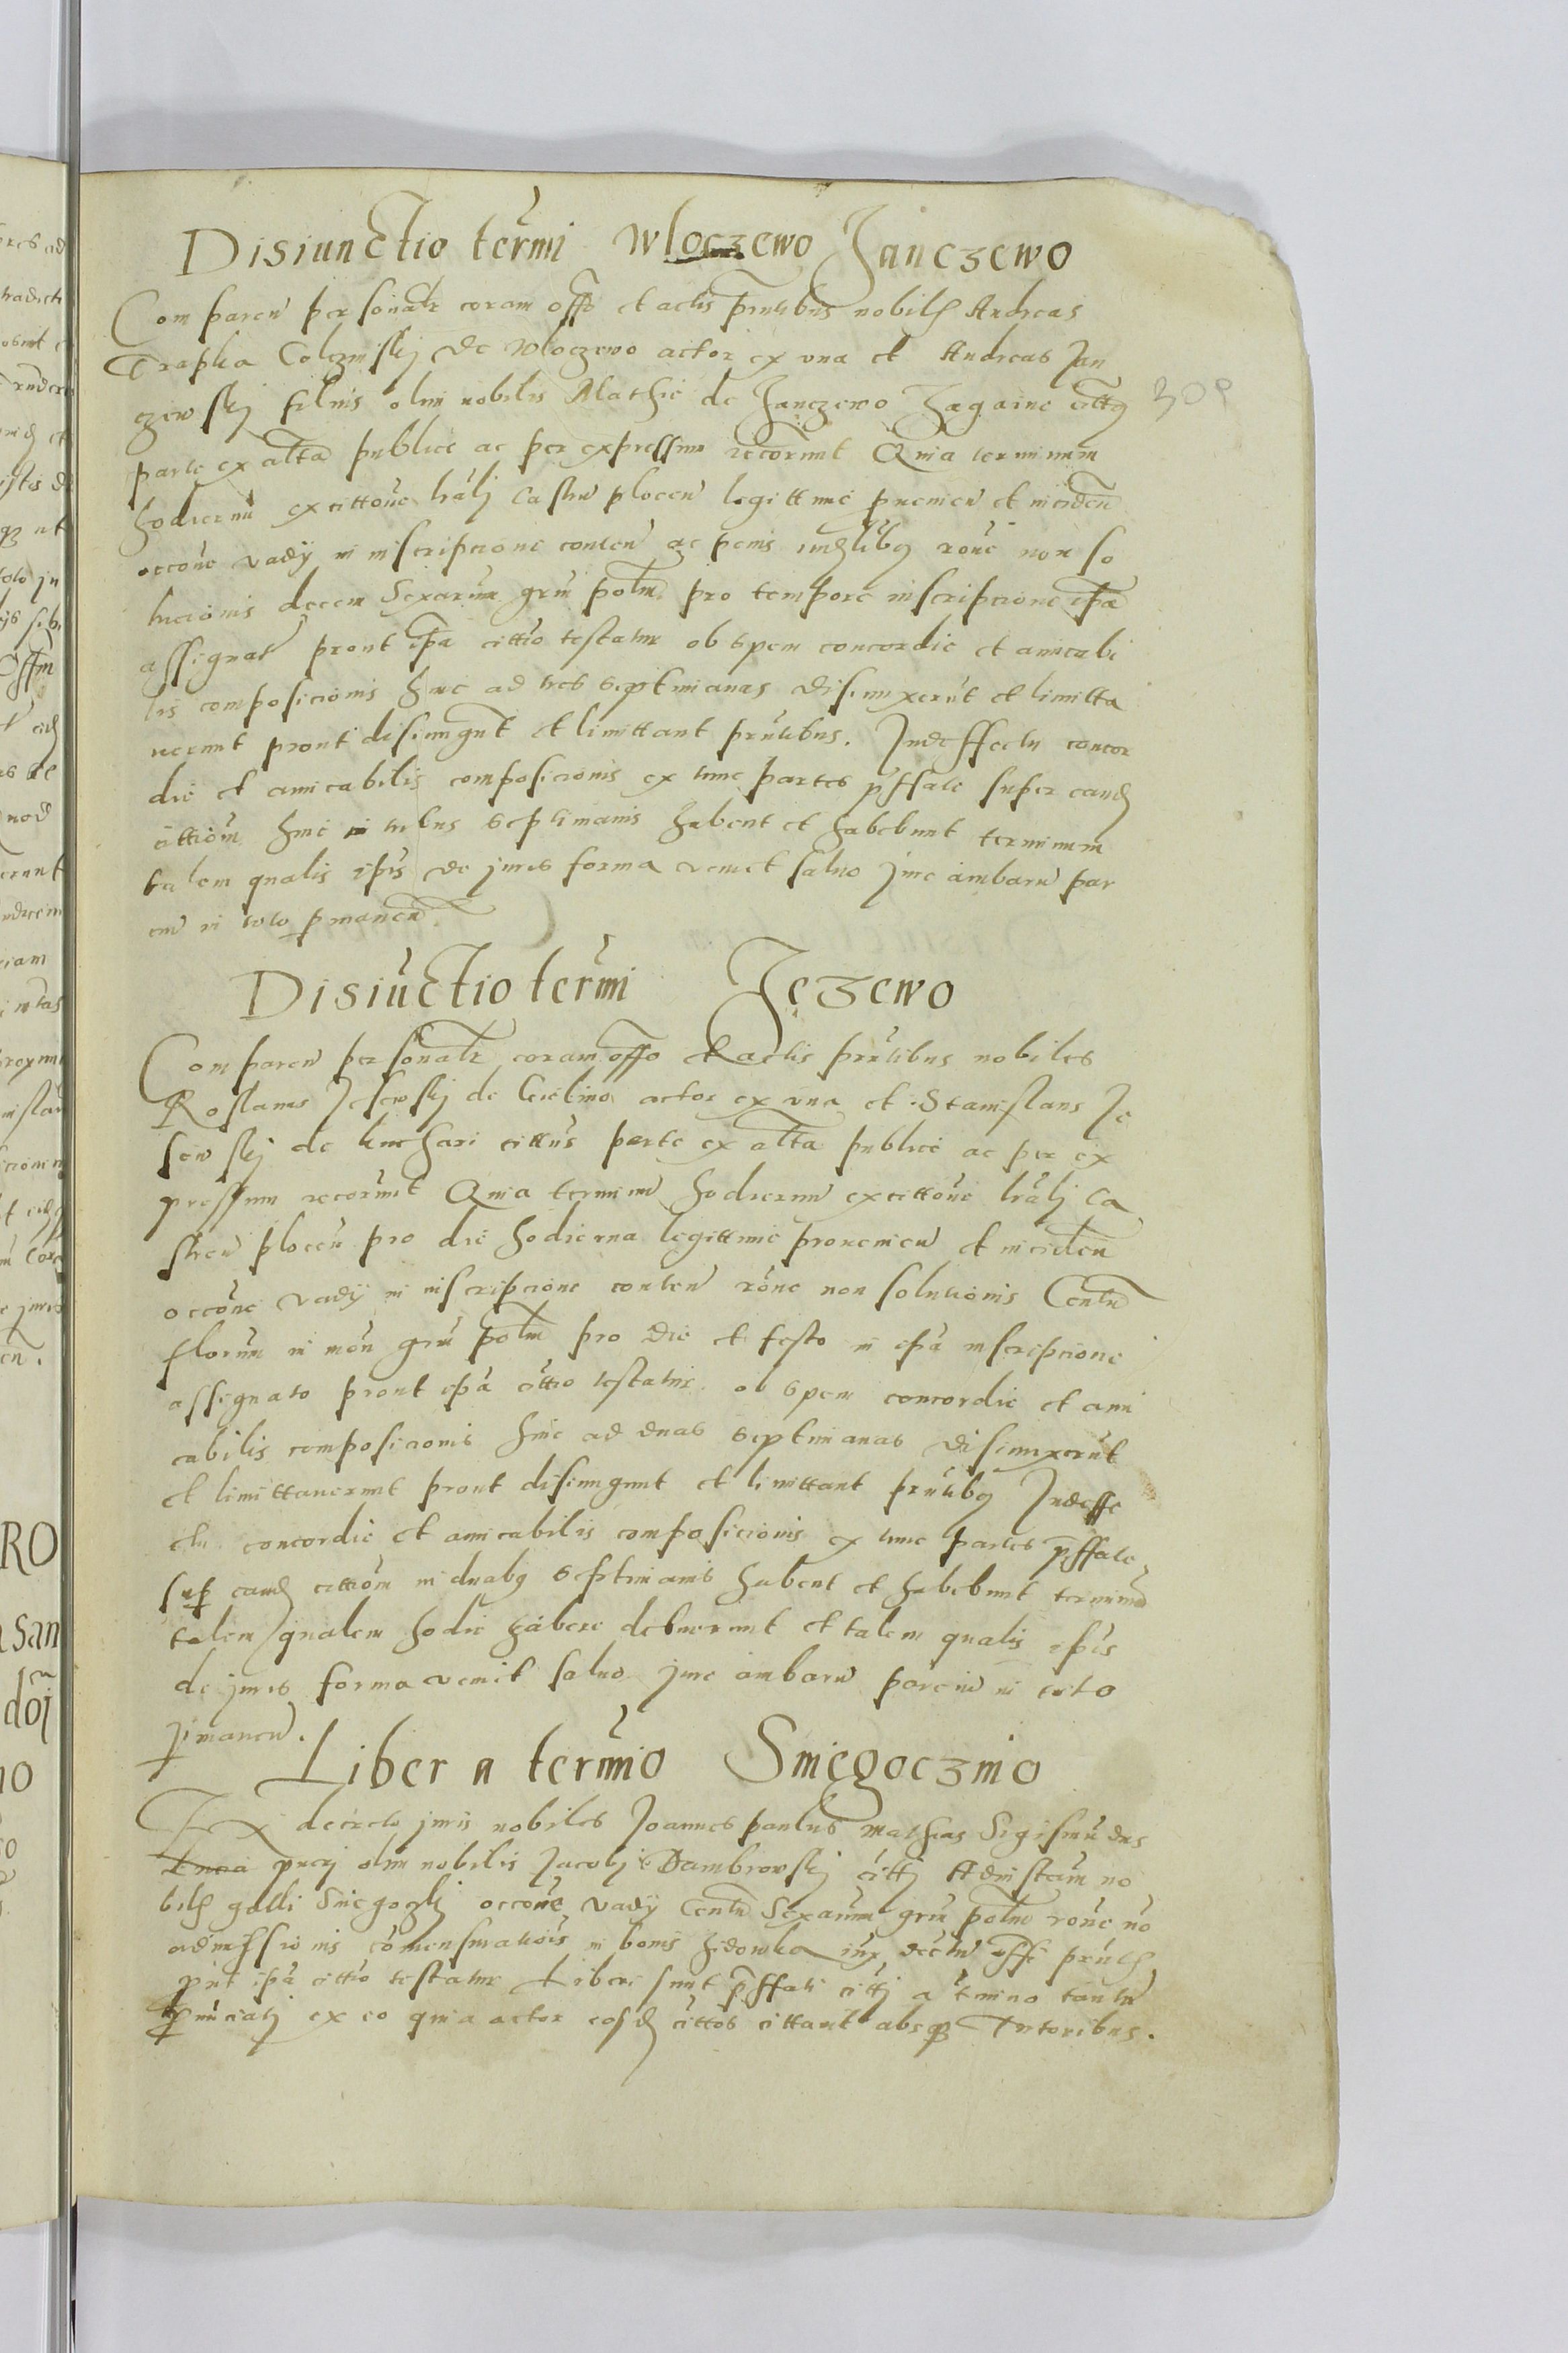 Disiunctio termi Wloczewo Janczewo
Comparen personalr coram offo et actis pntibus nobiles Andreas
Trapka Colczinskij de Wloczewo actor ex una et Andreas Jan
czewskij filius olim nobilis Mathie de Janczewo cittus
parte ex altra publice ac per expressum recorunt Quia terminum
hodiernu ex cittone lralj Castrn plocen legittime puenien et inciden
occone vadij in inscripcione conten ac penis rone non so
lucionis decem Sexarum gru polm pro tempore inscripcione ipa
assignat prout ipa cittio testatur ob spem concordie et amicabi
lis composicionis hinc ad tres septimanas disiunxerut et limitta
uerunt prout disiungut et limittant pntibus. Indeffectu concor
die et amicabilis composicionis ex tunc partes pffate super eand
cittiom hinc in tribus septimanis habent et habebunt terminum
talem qualis ipis de juris forma veniet saluo jure ambaru par
ciu in toto pmanen.
Disiuctio termi Jezewo
Comparen personalr coram offo et actis pntibus nobiles
Jesewskij de actor ex una et Stanislaus Je
sewskij de Kuchari cittus parte ex altra publice ac per ex
pressum recorunt Quia terminu hodiernu ex cittone lralj Ca
stren plocen pro die hodierna legittime prouenien et inciden
occone vadij in inscripcione conten rone non solutionis Centu
florum in mon gru polm pro die et festo in ipa inscripcione
assignato prout ipa cittio testatur ob spem concordie et ami
cabilis composicionis hinc ad duas septimanas disiunxerut
et limittauerunt prout disiungunt et limittant pntibus Indeffe
ctu concordie et amicabilis composicionis ex tunc partes pffate
sup eand cittiom in duabus septimanis habent et habebunt terminu
talem qualem hodie habere debuerunt et talem qualis ipis
de juris forma venit saluo jure ambaru parciu in toto
pmanen.
Liber a termino Smiegoczino
Ex decreto juris nobiles Joannes paulus Mathias Sigismudus
puerj olim nobilis Jacobj Dambrowskij cittj Ad instam no
bilis galli occone vadij Centu Sexarum gru polm rone no
admissionis comensurationis in bonis iux decretu offi pntis
put ipa cittio testatur Liberi sunt pffati cittj a termino tantu
ex eo quia actor eosd cittos cittauit absq Tutoribus.